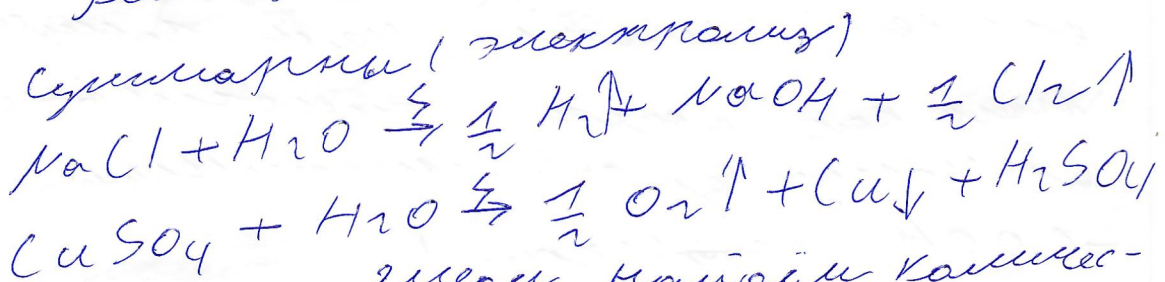 Суммарны (электролиз)
NaCl + H2O ⚡→ 1/2 H2↑ + NaOH + 1/2 Cl2↑
CuSO4 + H2O ⚡→ 1/2 O2↑ + Cu↓ + H2SO4
найдём количес-